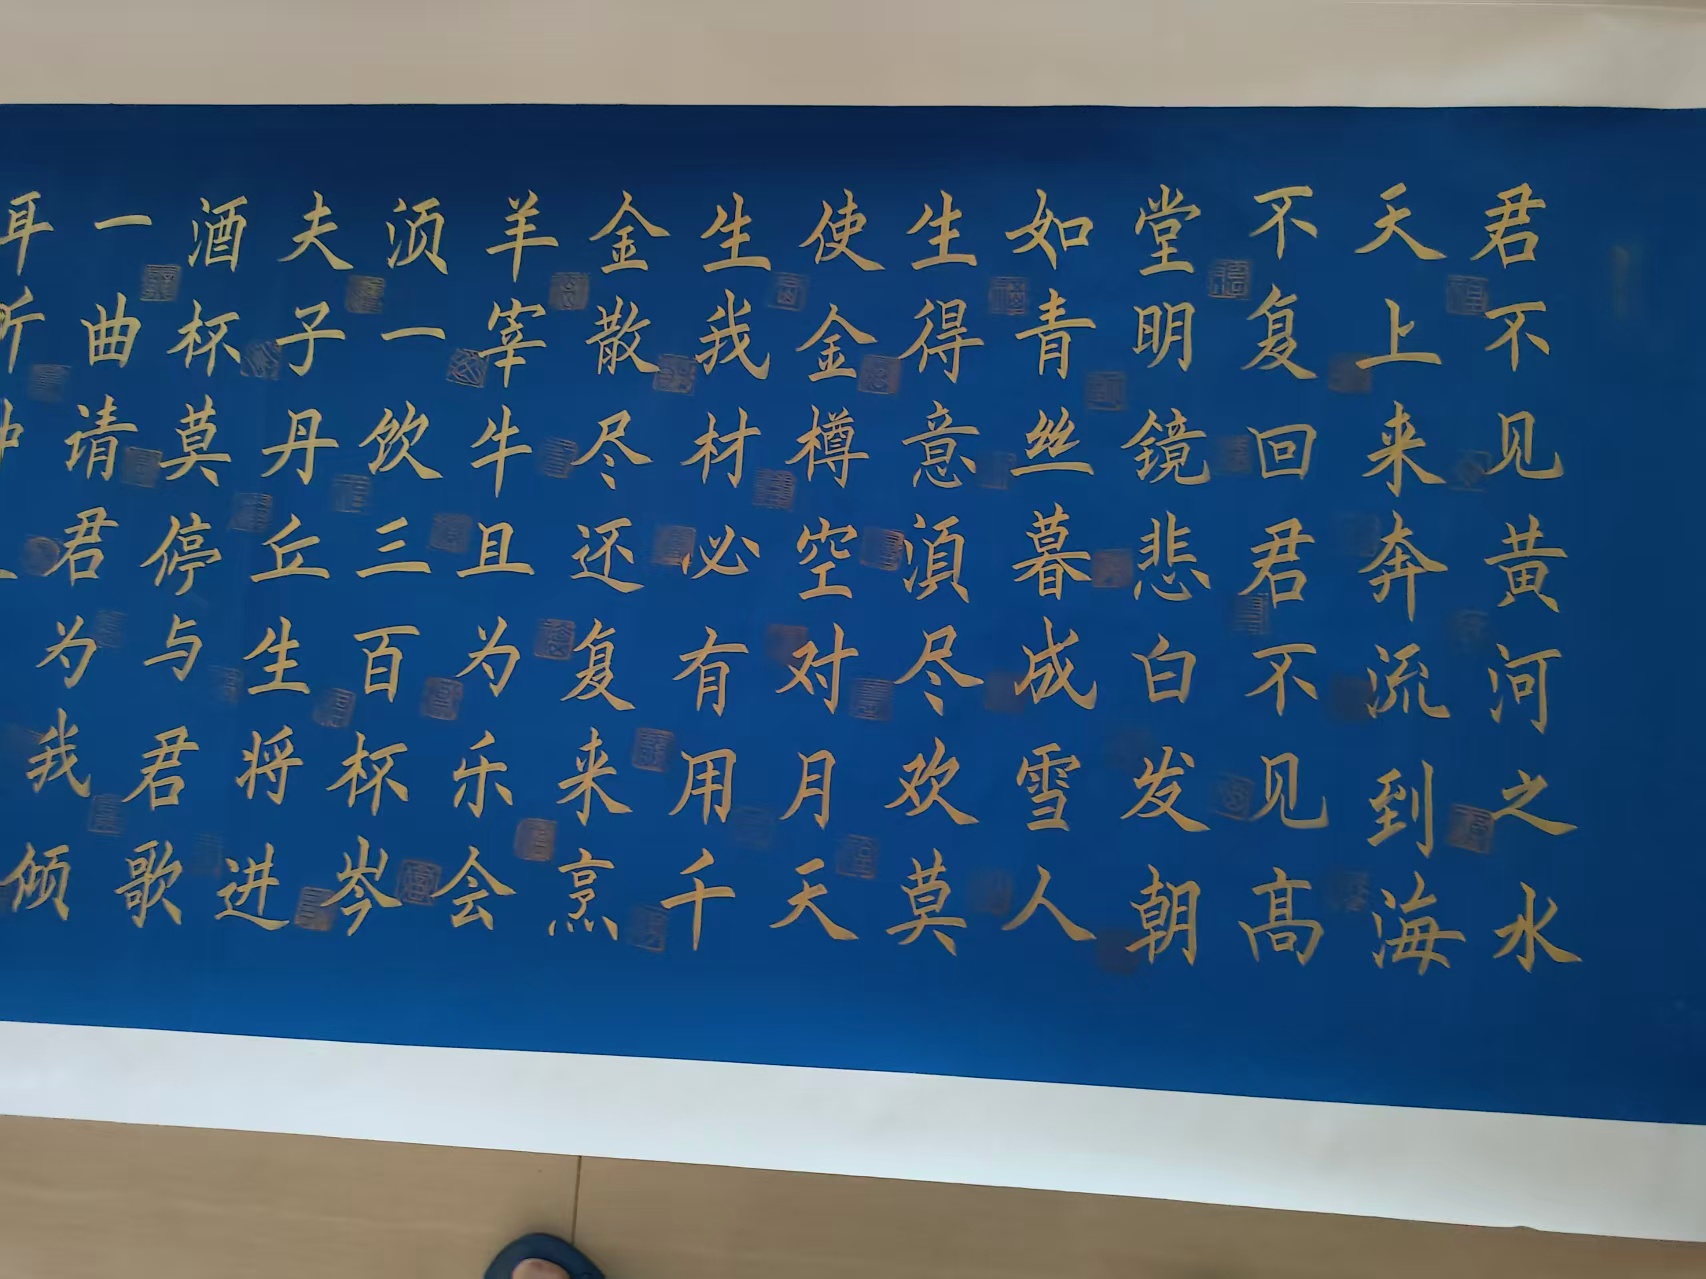 君不见黄河之水
天上来奔流到海
不复回君不见髙
堂明镜悲白发朝
如青丝暮成雪人
生得意湏尽欢莫
使金樽空对月天
生我材必有用千
金散尽还复来烹
羊宰牛且为乐会
须一饮三百杯岑
夫子丹丘生将进
酒杯莫停与君歌
一曲请君为我倾
耳听